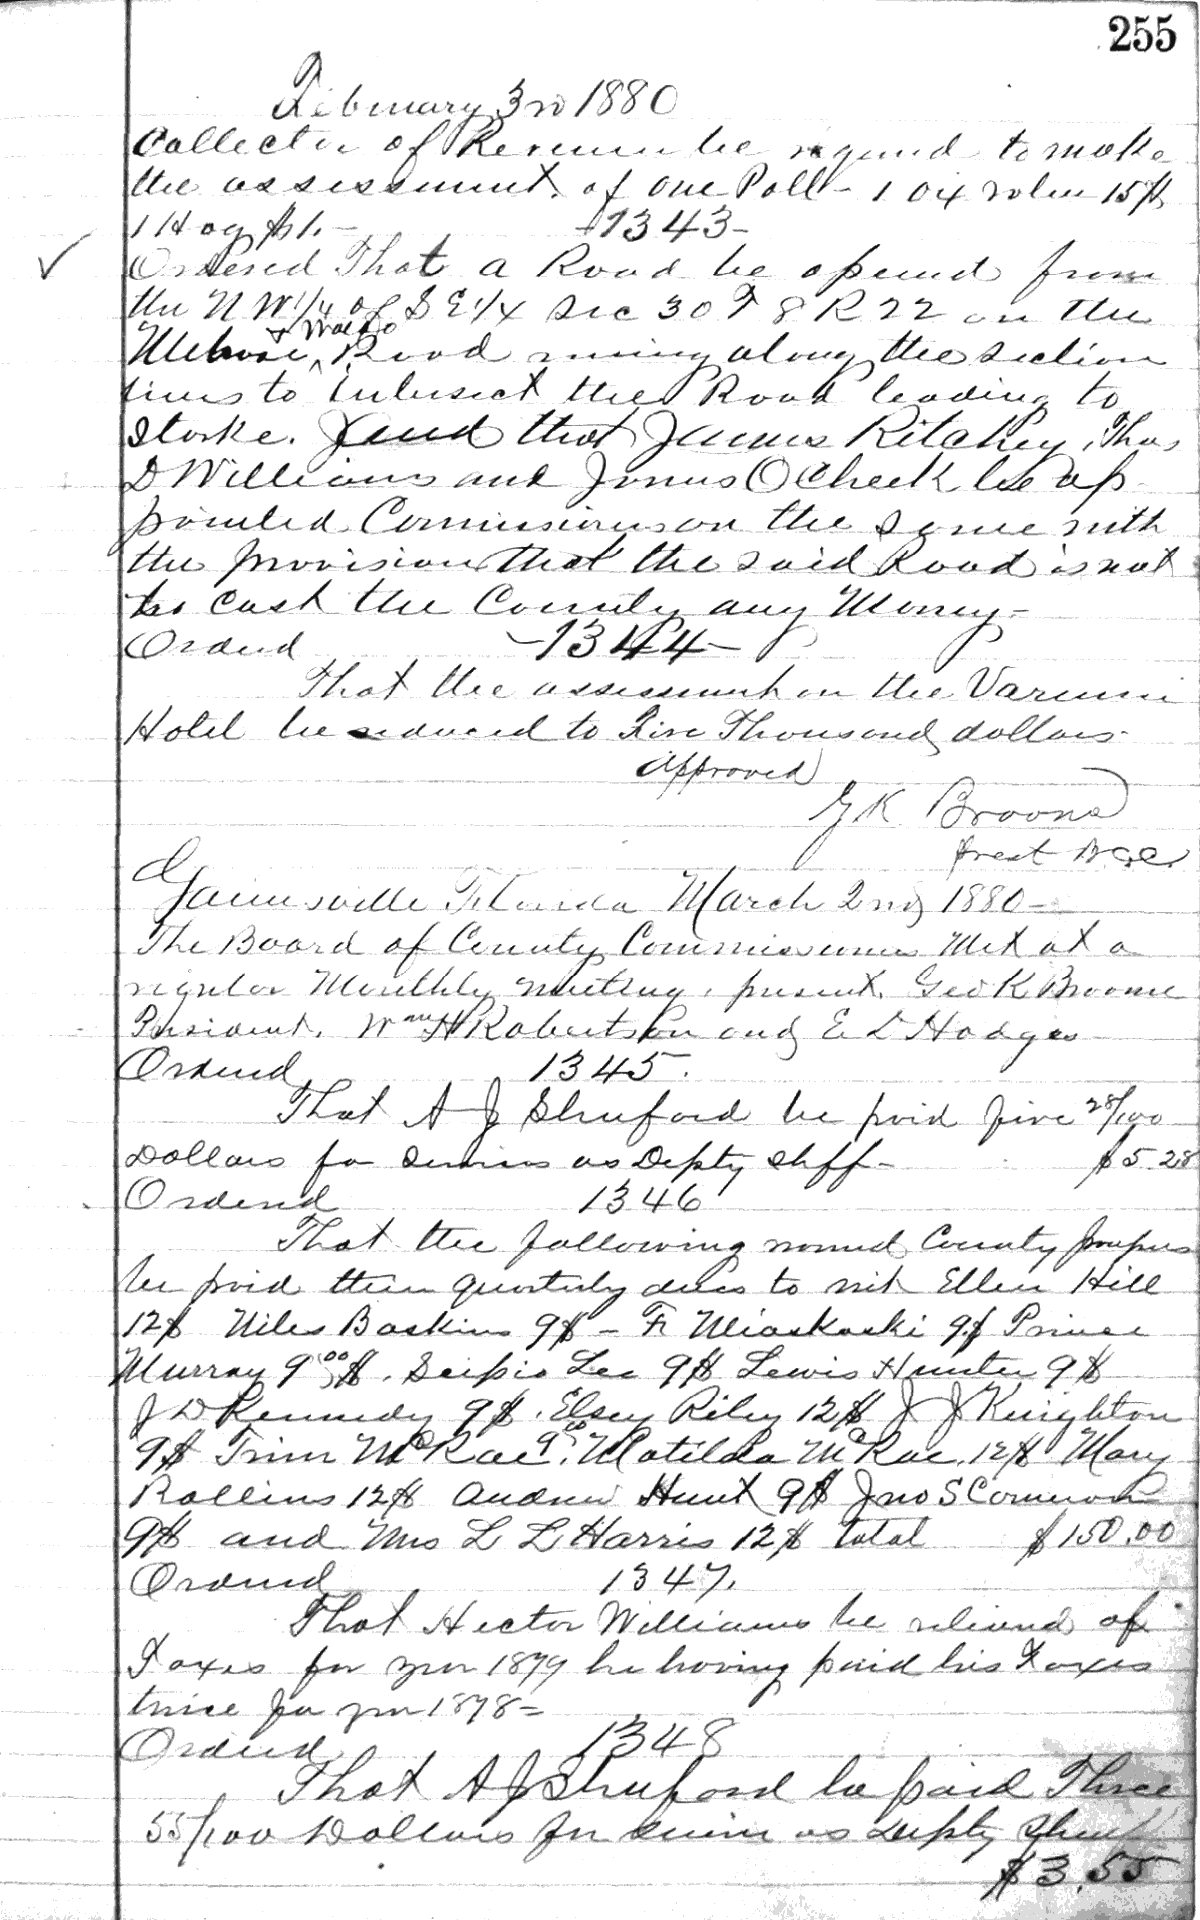 255
February 3rd 1880
Collector of Revenue be required to make
the assessment of one Poll - 1 Ox value 15$
1 Hog $1. -
-1343-
Ordered That a Road be opened from
the N W 1/4 of S E 1/4 Sec 30 T 8 R 22 on the
& Waldo
Melrose ^ Road runing along the section
lines to intersect the Road leading to
Starke. and that James Ritchey, Thos
D Williams and Jonas O Cheek be ap
pointed Commissioners on the same with
the provision that the said Road is not
to cost the County any Money -
Ordered -1344-
That the assessment on the Varnum
Hotel be reduced to Five Thousand dollars.
Approved
G K Broome
Prest B C C
Gainesville Florida March 2nd 1880 -
The Board of County Commissioners Met at a
regular Monthly meeting. present. Geo K Broome
President. Wm H Robertson and E D Hodges
Ordered 1345.
That A J Shuford be paid five 28/100
Dollars for services as Depty Shff - $5.28
Ordered 1346
That the following named County paupers
be paid their quarterly dues to wit Ellen Hill
12$ Niles Baskins 9$ - F. 9$ Prince
Murray 9.00$. Scipio Lee 9$ Lewis Hunter 9$
J D Kennedy 9$. Elsey Riley 12$ J J Knighton
9$ Trim McRae 9.00. Matilda McRae. 12$ Mary
Rollins 12$ Andrew Hunt 9$ Jno S Cameron
9$ and Mrs L L Harris 12$ total $150.00
Ordered 1347.
That Hector Williams be relieved of
Taxes for year 1879 he having paid his Taxes
twice for year 1878 -
Ordered 1348
That A J Shuford be paid Three
55/100 Dollars for service as Depty Sheriff
$3.55